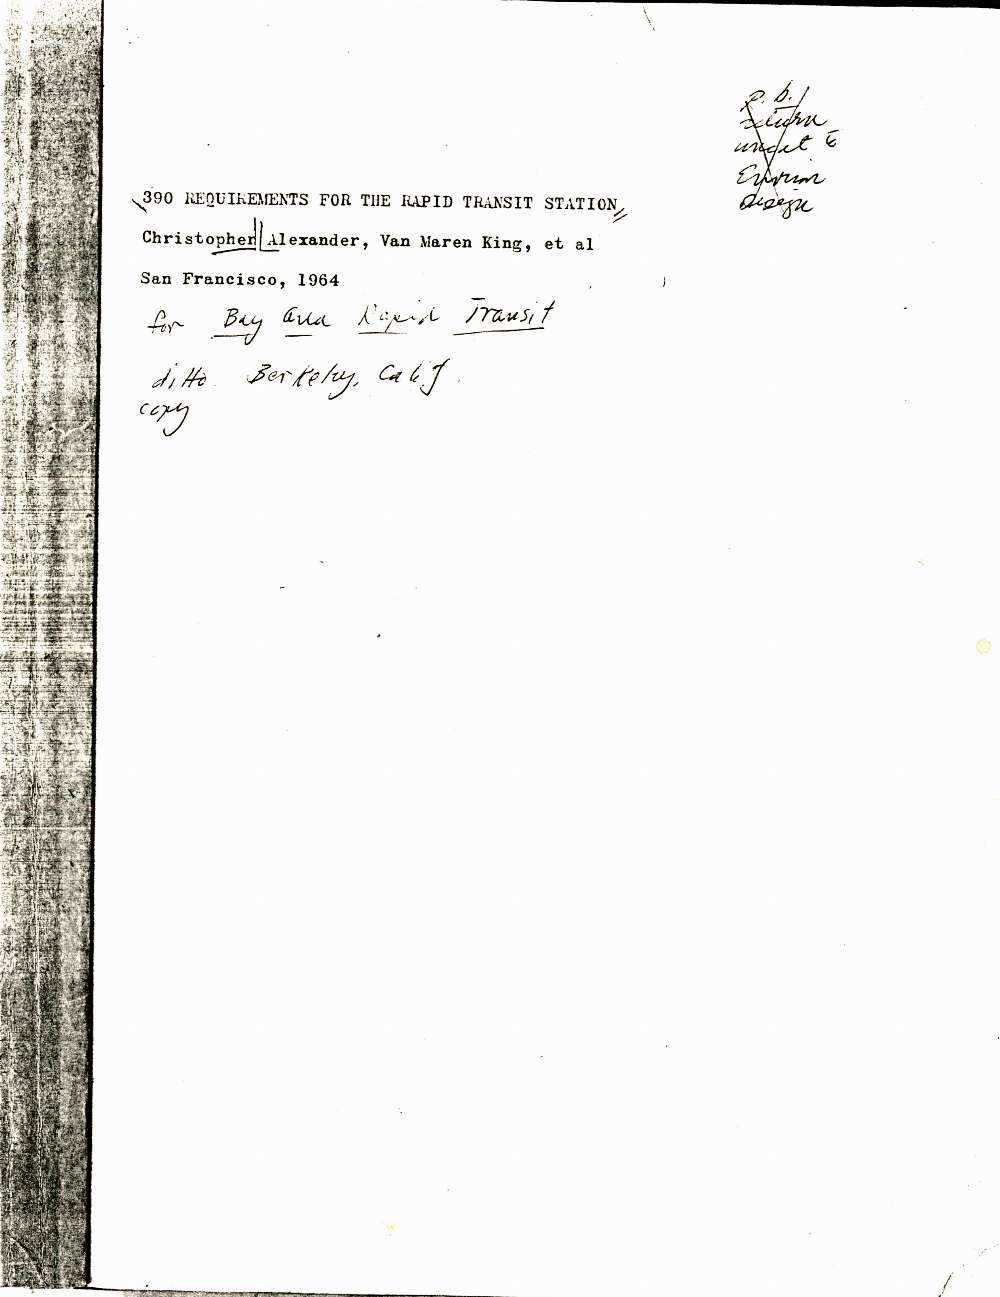 R. b.
return
Environ
design
390 REQUIREMENTS FOR THE RAPID TRANSIT STATION
Christopher Alexander, Van Maren King, et al
San Francisco, 1964
for Bay Area Rapid Transit
ditto Berkeley, Calif.
copy